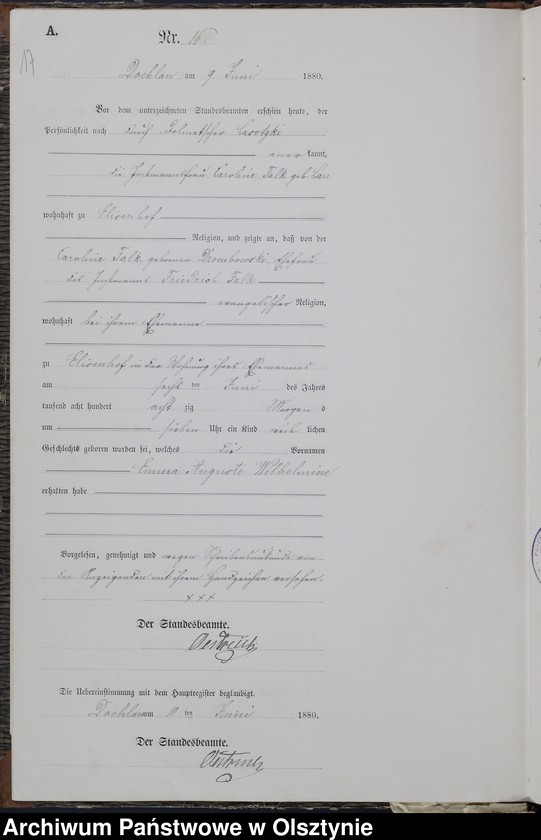 A.
Nr. 16
17
Doehlau am 9 Juni 1880.
Vor dem unterzeichneten Standesbeamten erschien heute, der
Persönlichkeit nach durch Dolmetscher
kannt,
die Instmannsfrau Caroline Falk geb.
wohnhaft zu Elisenhof
Religion, und zeigte an, daß von der
Caroline Falk, geborenen Dzembowski, Ehefrau
des Instmanns Friedrich Falk
evangelischer Religion,
wohnhaft bei ihrem Ehemanne
zu Elisenhof in der Wohnung ihres Ehemannes
am sechs ten Juni des Jahres
tausend acht hundert acht zig Morgens
um sieben Uhr ein Kind weib lichen
Geschlechts geboren worden sei, welches die Vornamen
Emma Auguste Wilhelmine
erhalten habe
Vorgelesen, genehmigt und wegen Schreibensunkunde von
der Anzeigenden mit ihrem Handzeichen versehen.
+++
Der Standesbeamte.
Die Uebereinstimmung mit dem Hauptregister beglaubigt.
Doehlau am 10 ten Juni 1880.
Der Standesbeamte.
Archiwum Państwowe w Olsztynie